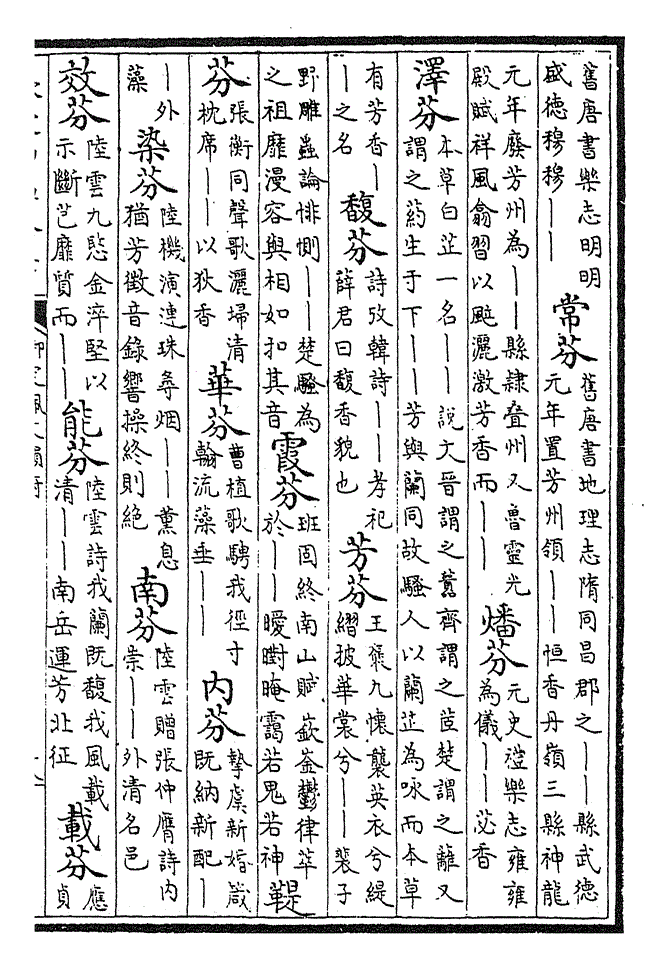 舊唐書樂志明明
盛德穆穆——
常芬
舊唐書地理志隋同昌郡之——縣武德
元年置芳州領——恒香丹嶺三縣神龍
元年廢芳州為——縣隸疊州又魯靈光
殿賦祥風翕習以颭灑激芳香而——
燔芬
元史禮樂志雍雍
為儀——苾香
澤芬
本草白芷一名——說文晉謂之䖀齊謂之茝楚謂之蘺又
謂之葯生于下——芳與蘭同故騷人以蘭芷為咏而本草
有芳香—
—之名
馥芬
詩攷韓詩——孝祀
薛君曰馥香貌也
芳芬
王褒九懷襲英衣兮緹
䌌披華裳兮——裴子
野雕蟲論悱惻——楚騷為
之祖靡漫容與相如扣其音
霞芬
班固終南山賦嶔崟鬱律萃
於——曖㬣晻靄若鬼若神
鞮芬
張衡同聲歌灑埽清
枕席——以狄香
華芬
曹植歌騁我徑寸
翰流藻垂——
內芬
摯虞新婚箴
既納新配—
—外
藻
染芬
陸機演連珠尋烟——薰息
猶芳徵音錄響操終則絕
南芬
陸雲贈張仲膺詩內
崇——外清名邑
效芬
陸雲九愍金淬堅以
示斷芑靡質而——
能芬
陸雲詩我蘭既馥我風載
清——南岳運芳北征
載芬
應
貞